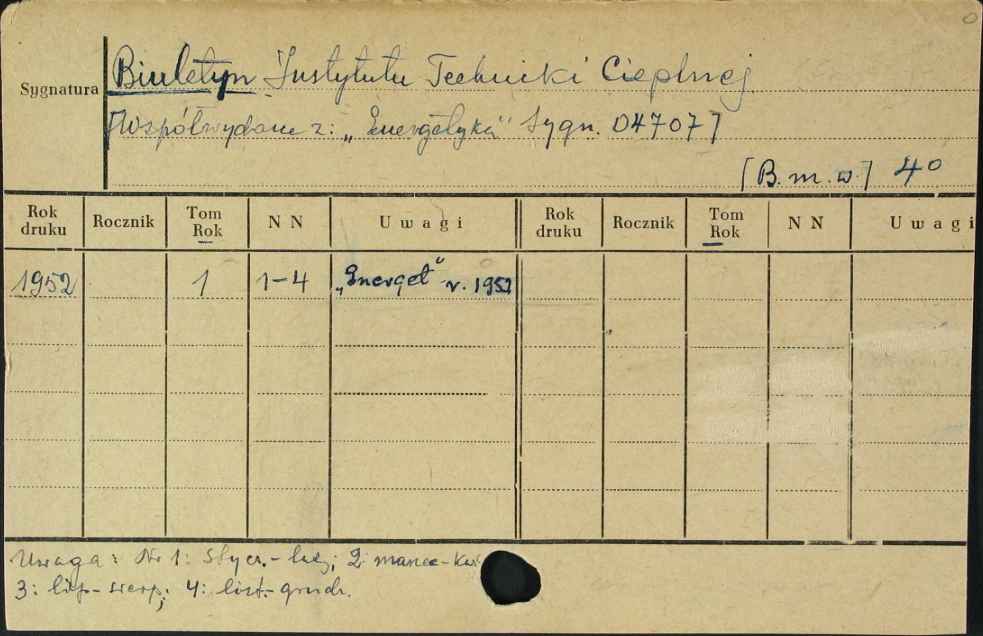 Sygnatura
Biuletyn Instytutu Techniki Cieplnej
[Współwydane z: „Energetyka" Sygn. 04707]
[B. m. w.] 4°
Rok druku Rocznik Tom Rok N N Uwagi Rok druku Rocznik Tom Rok N N Uwagi
1952 1 1-4 „Energet" r. 1952
Uwaga: Nr 1: Stycz.-luty; 2: marzec-kw
3: lip-sierp; 4: list.-grudz.